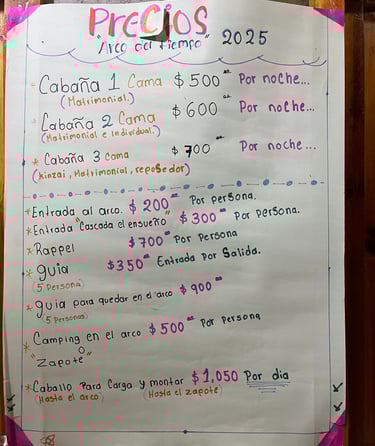 PRECIOS
"Arco del Tiempo" 2025
Cabaña 1 Cama $500.00 Por noche...
(Matrimonial.)
Cabaña 2 Cama $600.00 Por noche...
(Matrimonial e Individual.)
* Cabaña 3 cama $700.00 Por noche...
(kinzai, Matrimonial, reposedor)
*Entrada al arco. $200.00 Por persona.
*Entrada "Cascada el ensueño" $300.00 Por persona.
*Rappel $700.00 Por persona
*guia $350.00 Entrada por salida.
(5 Persona)
*guia para quedar en el arco $900.00
(5 Personas)
*Camping en el arco $500.00 Por persona
o
"Zapote"
*Caballo Para Carga y montar $1,050 Por dia
(Hasta el arco) (Hasta el zapote)